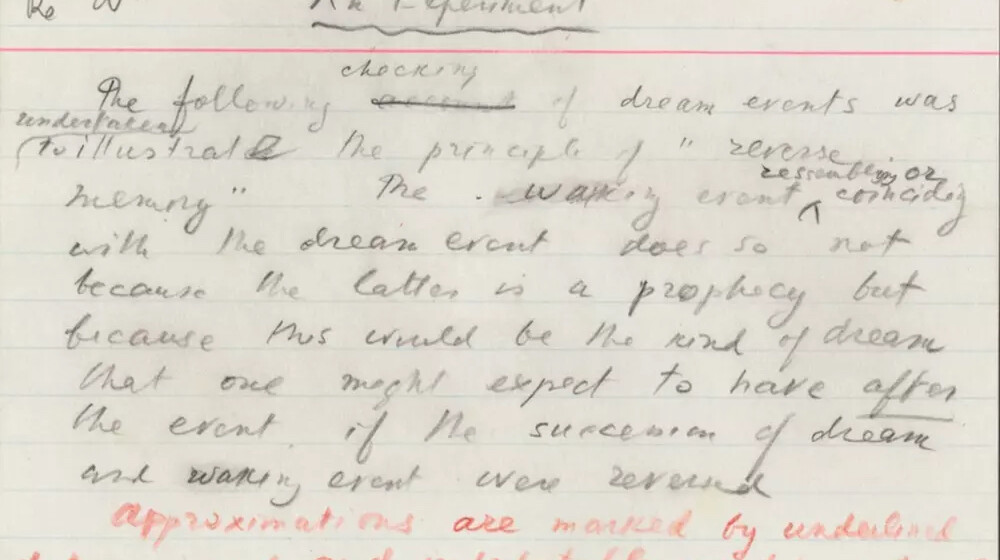 An Experiment
The following checking of dream events was
undertaken
to illustrate the principle of "reverse
memory" The waking event resembling or coinciding
with the dream event does so not
because the latter is a prophecy but
because this would be the kind of dream
that one might expect to have after
the event, if the succession of dream
and waking event were reversed
approximations are marked by underlined